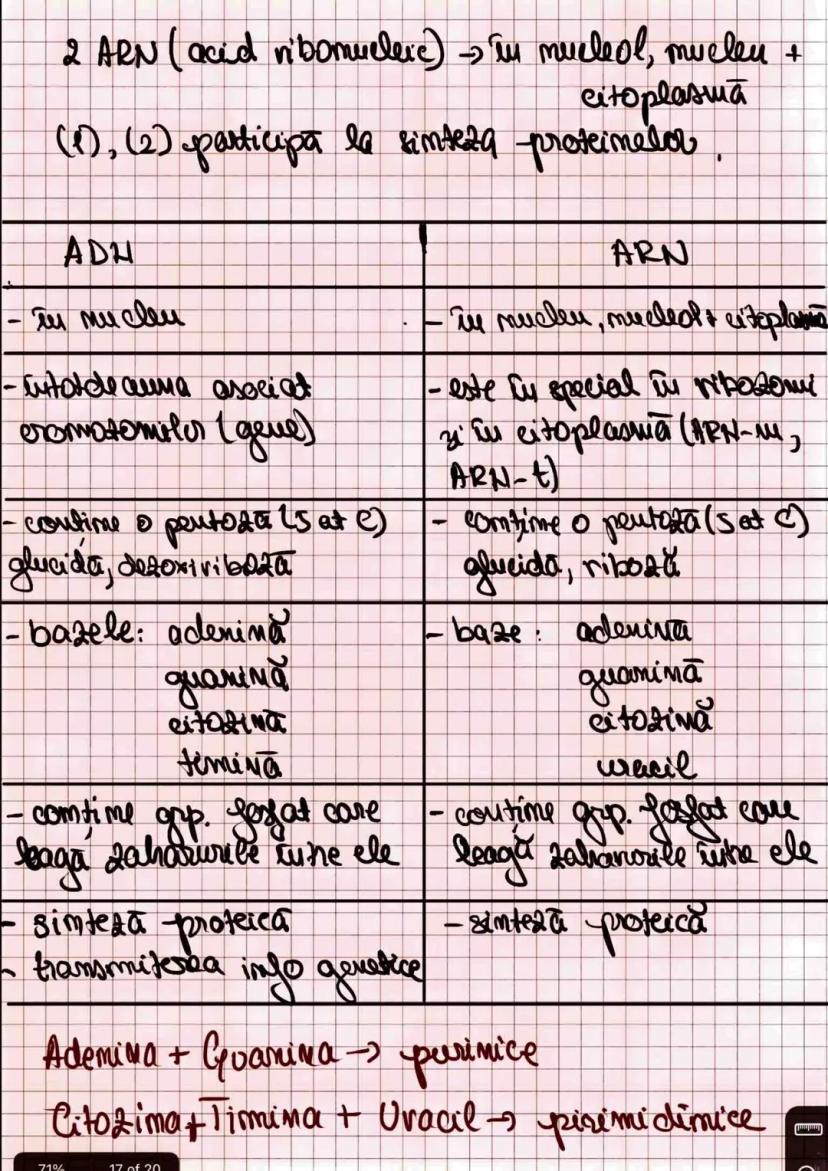 2 ARN (acid ribonucleic) → în nucleol, nucleu +
citoplasmă
(1), (2) participă la sinteza proteinelor.
ADN
ARN
- în nucleu
- în nucleu, nucleol + citoplasmă
- întotdeauna asociat
cromozomilor (gene)
- este în special în ribozomi
și în citoplasmă (ARN-m,
ARN-t)
- conține o pentoză (5 at C)
glucidă, dezoxiriboză
- conține o pentoză (5 at C)
glucidă, riboză
- bazele: adenină
guanină
citozină
timină
- baze: adenină
guanină
citozină
uracil
- conține grp. fosfat care
leagă zaharurile între ele
- conține grp. fosfat care
leagă zaharurile între ele
- sinteză proteică
- transmiterea info genetice
- sinteză proteică
Adenina + Guanina → purinice
Citozina + Timina + Uracil → pirimidinice
71% 17 of 20